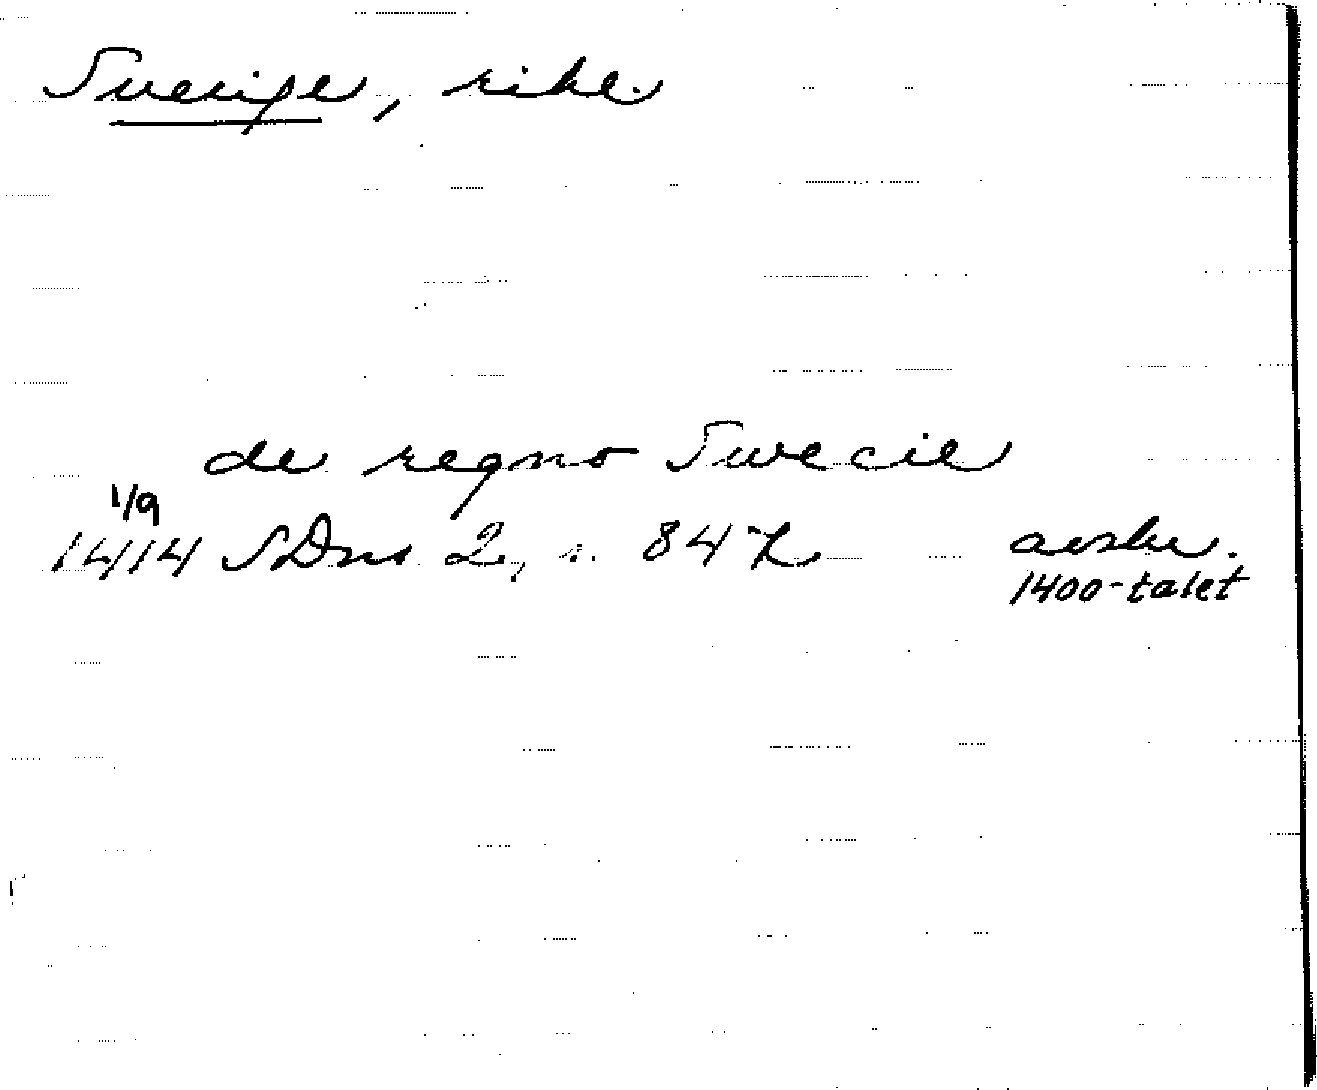 Sverige, rike.
de regno Swecie
1/9
1414 SDns 2, s. 847 avskr.
1400-talet